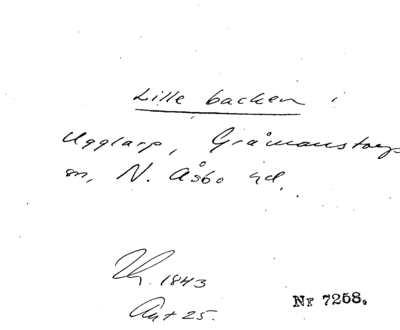 Lille backen i
Ugglarp, Gråmanstorps
sn, N. Åsbo hd.
1843
Ant 25.
Nr 7258.